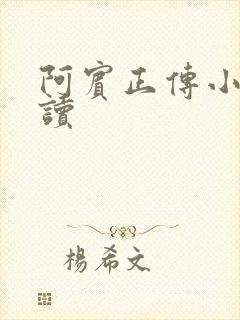 阿賓正傳小
讀
楊希文